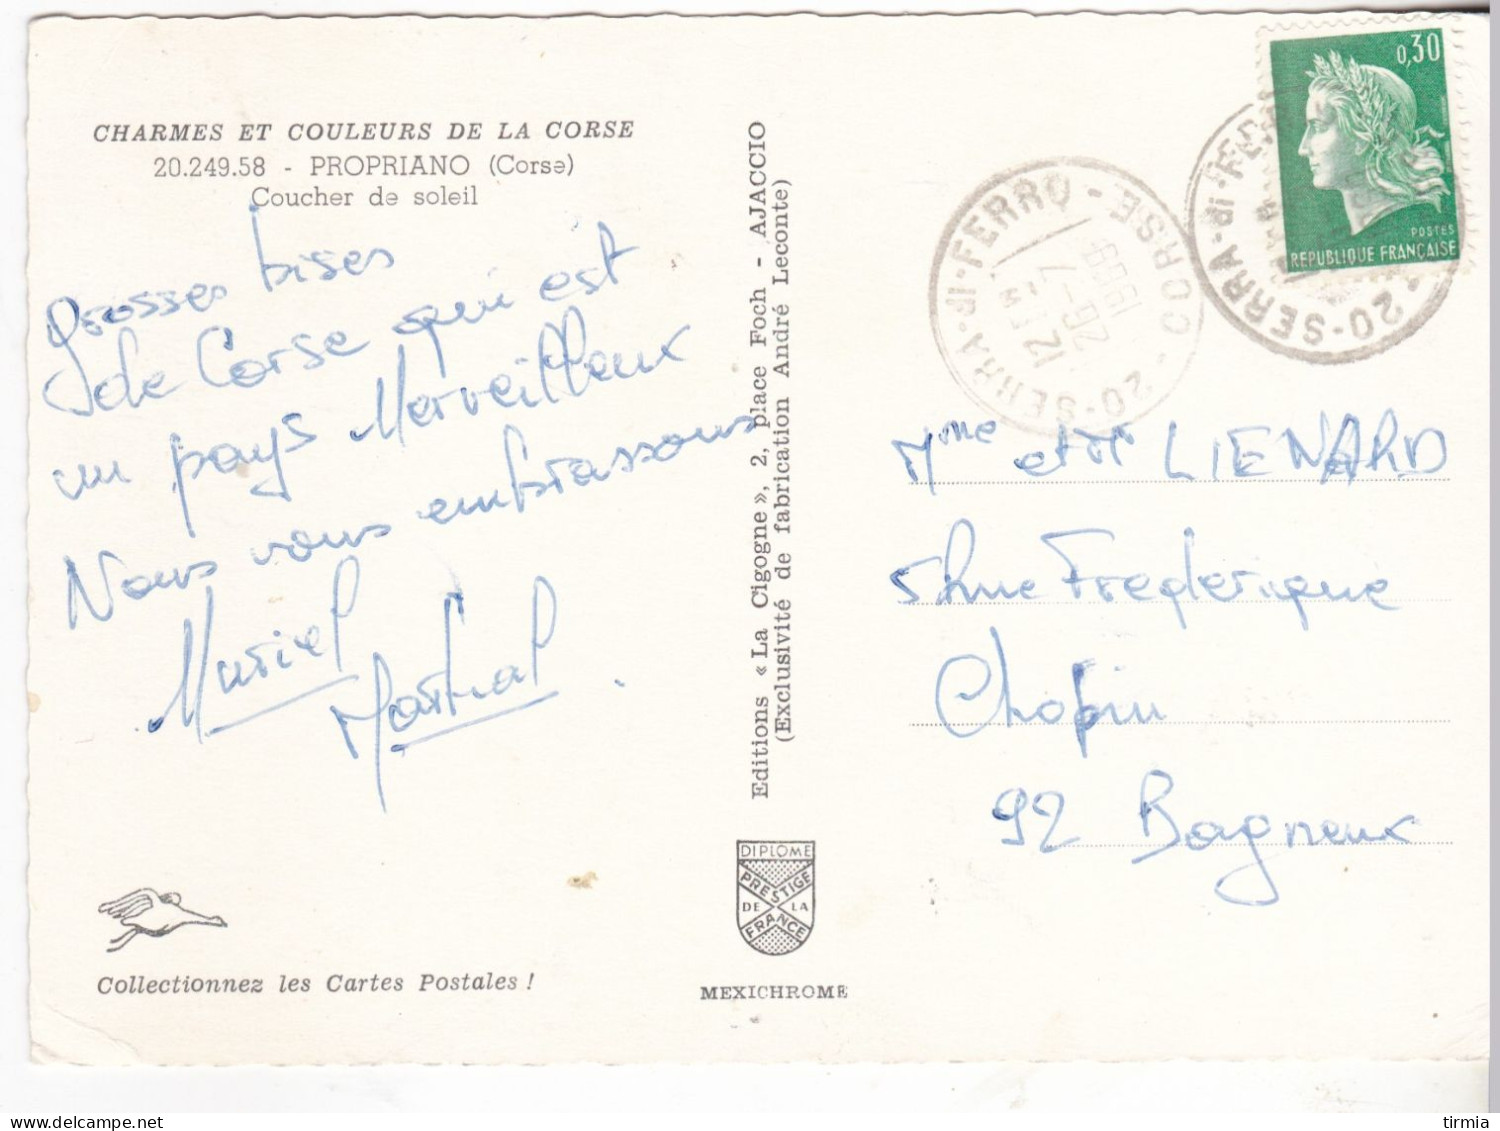 CHARMES ET COULEURS DE LA CORSE
20.249.58 - PROPRIANO (Corse)
Coucher de soleil
Grosses bises
de Corse qui est
un pays Merveilleux
Nous vous embrassons
Muriel
Martial
Collectionnez les Cartes Postales !
Editions « La Cigogne », 2, place Foch - AJACCIO
(Exclusivité de fabrication André Leconte)
DIPLOME
PRESTIGE
DE LA
FRANCE
MEXICHROME
0,30
POSTES
REPUBLIQUE FRANÇAISE
20-SERRA-di-FERRO - CORSE
12H
26-7
1969
20-SERRA-di-FERRO
Mme et Mr LIENARD
5 Rue Frederique
Chopin
92 Bagneux
tirmia